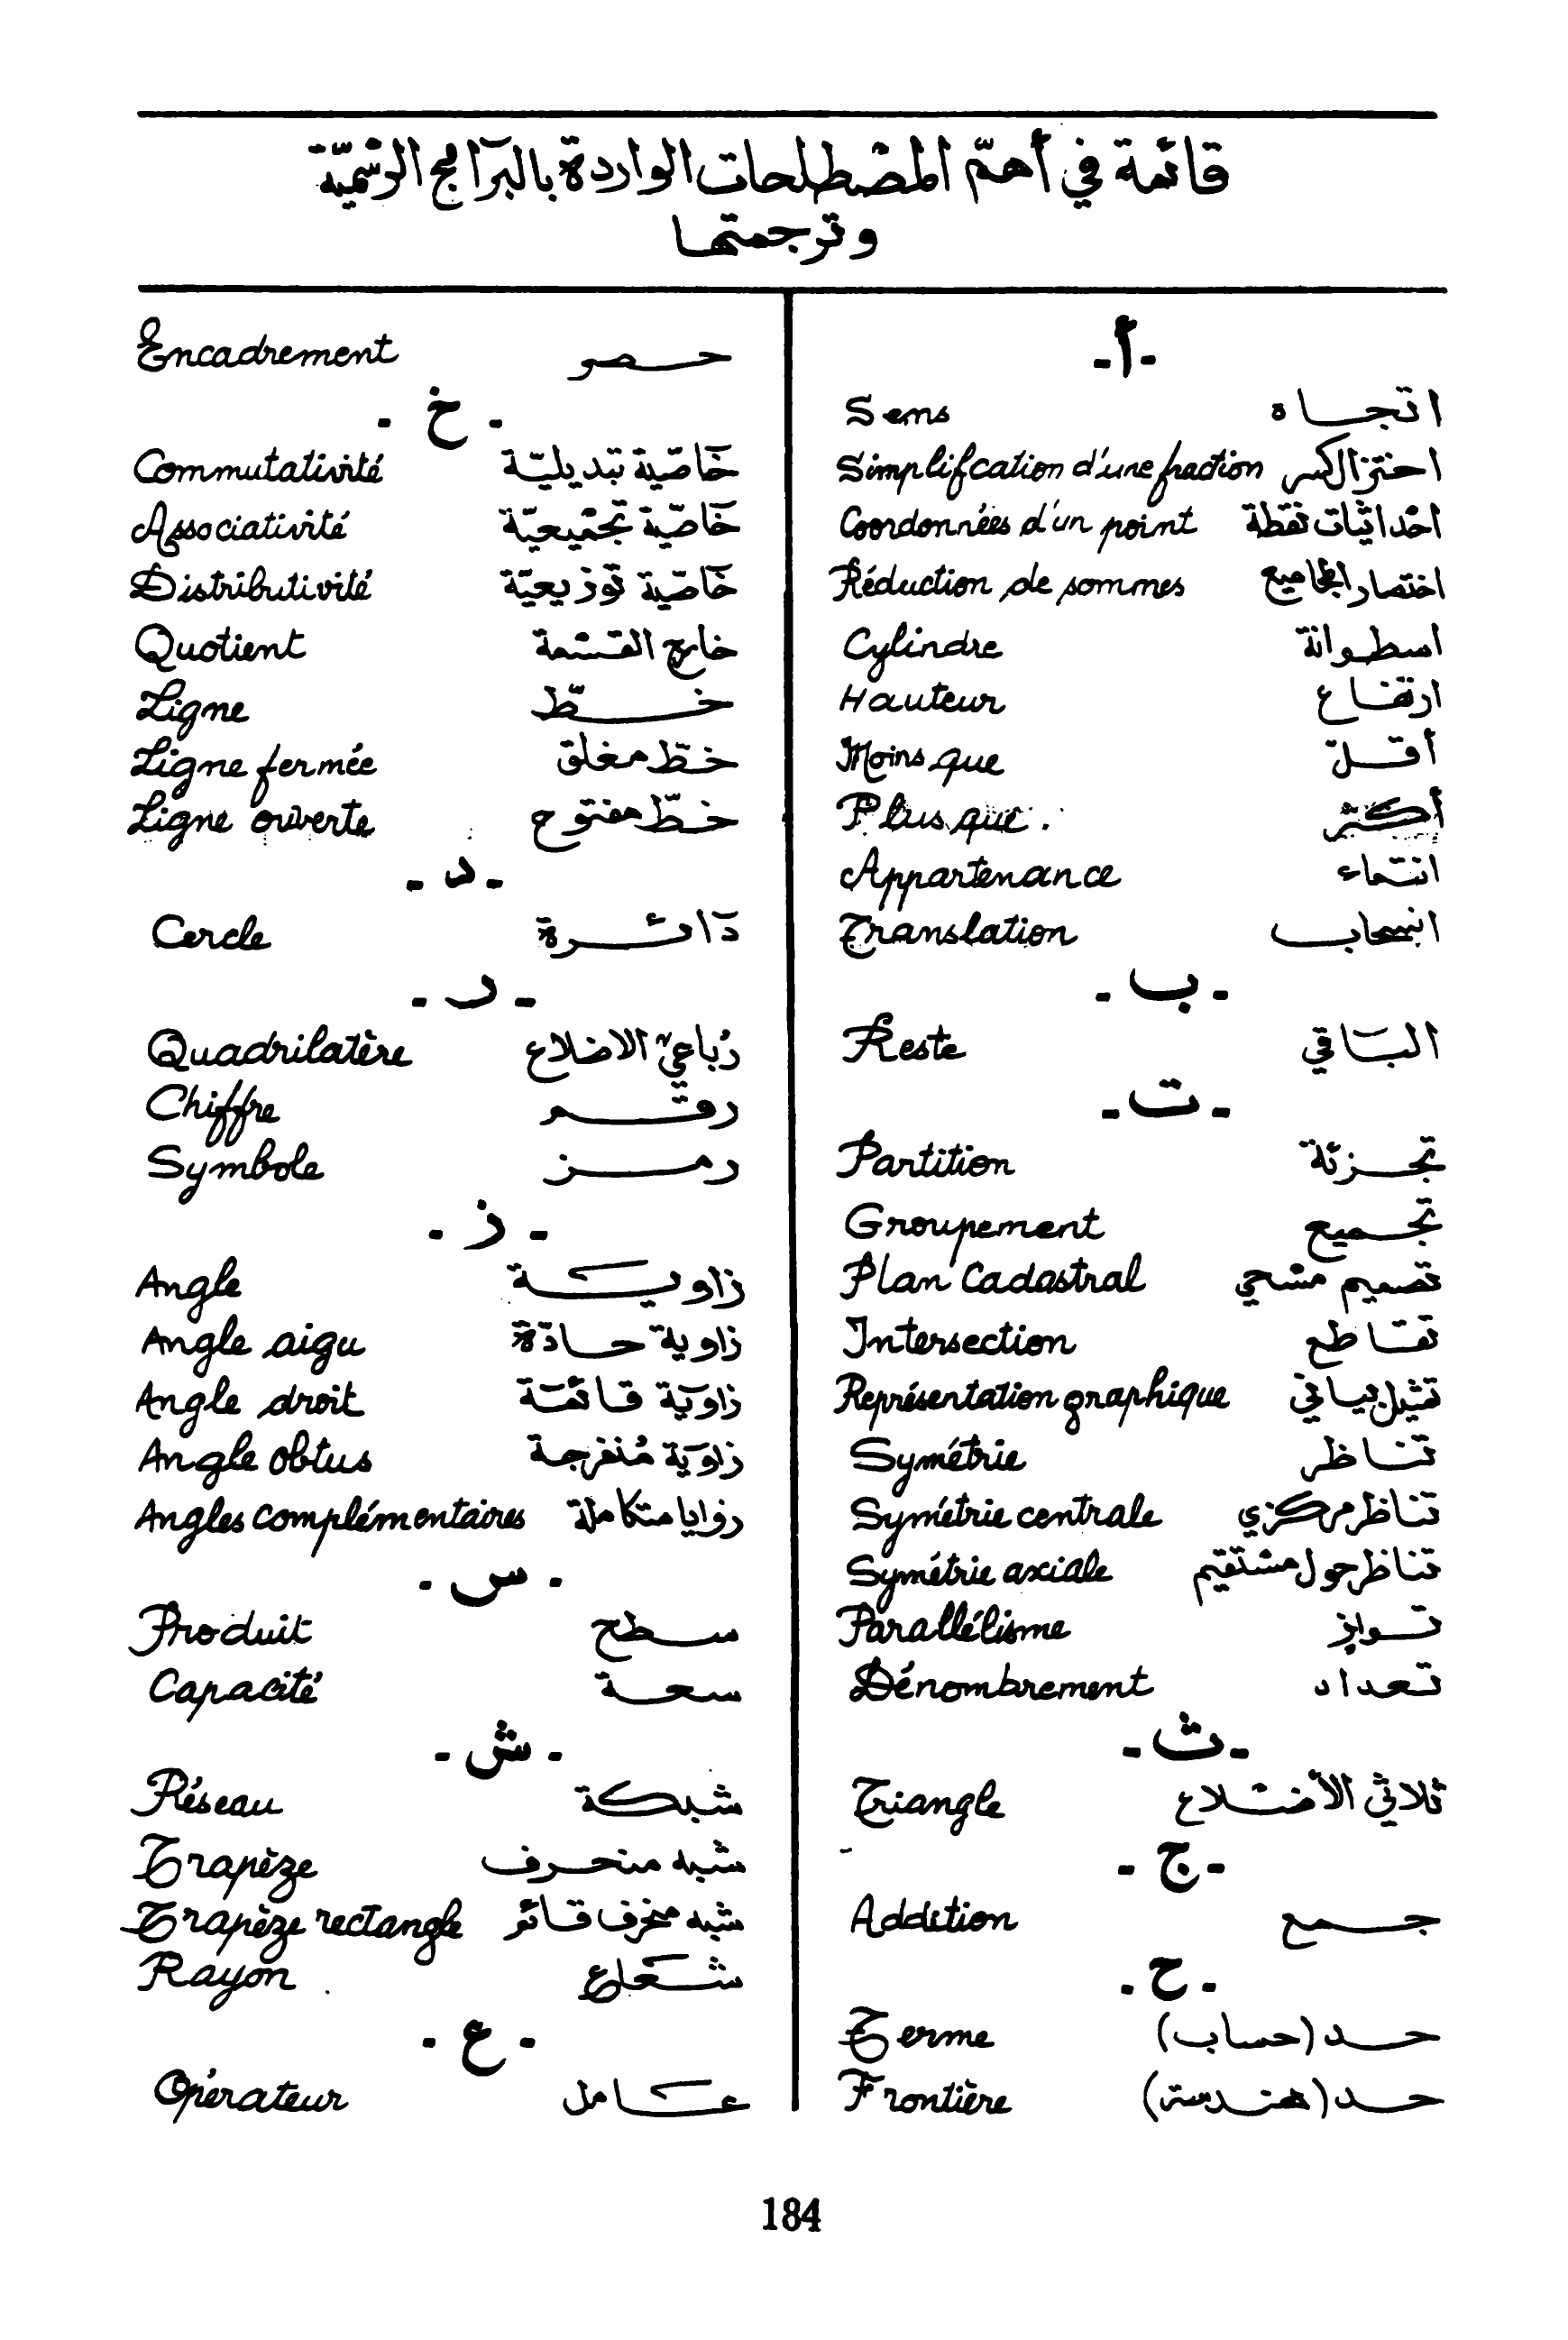 قائمة في أهمّ المصْطلحات الواردة بالبرَامج الرسْميّة
وترجمتها
-أ-
اتجاه Sens
احتزال الكسر Simplifcation d'une fraction
احْداثيات نقطة Coordonnées d'un point
اختصار المجاميع Réduction de sommes
اسطوانة Cylindre
ارتفاع Hauteur
أقلّ Moins que
أكثر Plus que
انتماء Appartenance
انسحاب Translation
-ب-
البَاقي Reste
-ت-
تجزئة Partition
تجميع Groupement
تصميم مسْحي Plan Cadastral
تقاطع Intersection
تمثيل بياني Représentation graphique
تناظر Symétrie
تناظر مركزي Symétrie centrale
تناظر حول مستقيم Symétrie axiale
تواز Parallélisme
تعداد Dénombrement
-ث-
ثلاثي الأضلاع Triangle
-ج-
جمع Addition
-ح-
حد (حساب) Terme
حد (هندسة) Frontière
حصر Encadrement
-خ-
خَاصّية تبديليّة Commutativité
خَاصّية تجْميعيّة Associativité
خَاصّية توزيعيّة Distributivité
خارج القسْمة Quotient
خطّ Ligne
خطّ مغلق Ligne fermée
خطّ مفتوح Ligne ouverte
-د-
دَائرة Cercle
-ر-
رُباعيّ الاضلاع Quadrilatère
رقم Chiffre
رمز Symbole
-ذ-
زاوية Angle
زاوية حادّة Angle aigu
زاويَة قائمَة Angle droit
زاويَة مُنفرجة Angle obtus
زوايا متكاملة Angles complémentaires
-س-
سطح Produit
سعة Capacité
-ش-
شبكة Réseau
شبه منحرف Trapèze
شبه منحرف قائم Trapèze rectangle
شعَاع Rayon
-ع-
عَامل Opérateur
184